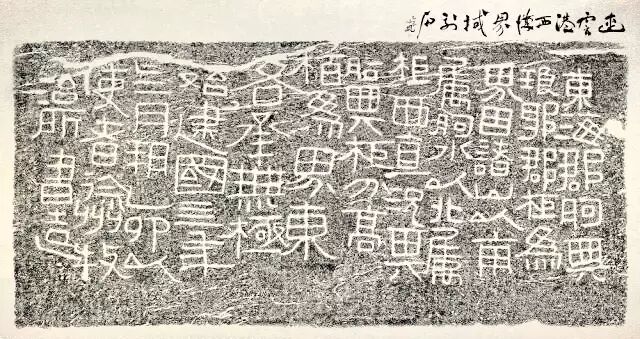 連雲港西連界域刻石
東海郡朐與
琅邪郡柜為
界因諸山以南
屬朐水以北屬
柜西直況其
朐與柜分高
為界東
各承無極
始建國四年
四月朔乙卯以
使者徐州牧
治所書造